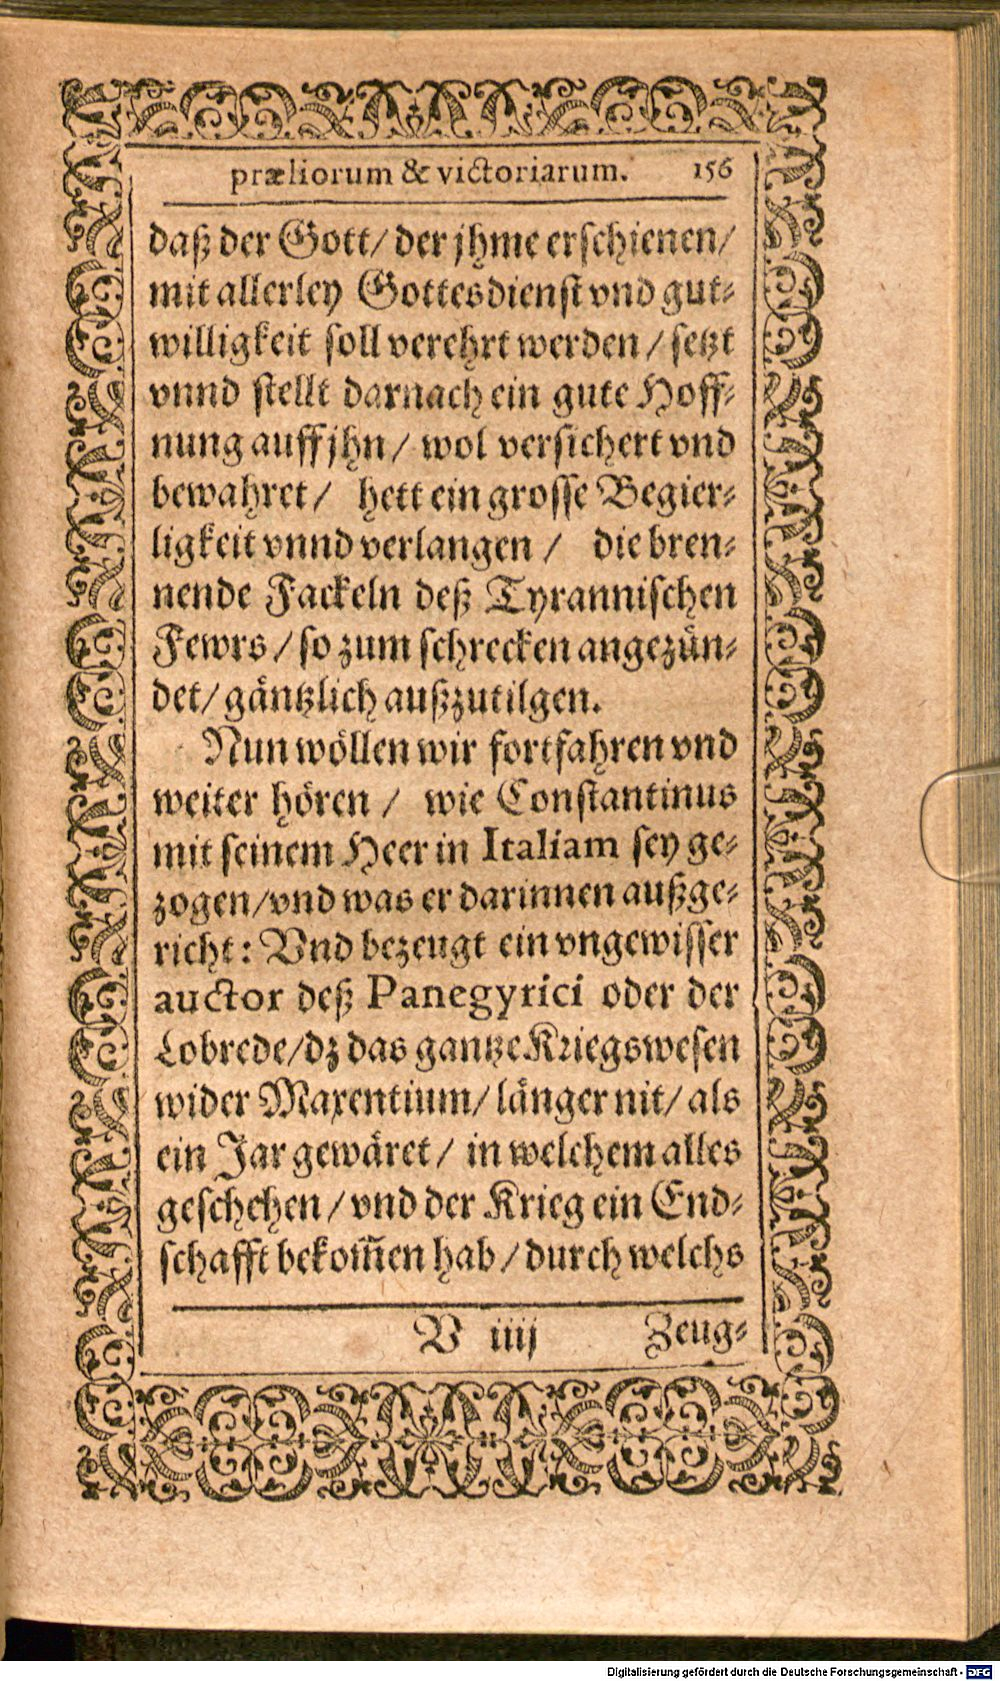 præliorum & victoriarum. 156
daß der Gott/ der jhme erschienen/
mit allerley Gottesdienst vnd gut⸗
willigkeit soll verehrt werden / setzt
vnnd stellt darnach ein gute Hoff⸗
nung auff jhn / wol versichert vnd
bewahret / hett ein grosse Begier⸗
ligkeit vnnd verlangen / die bren⸗
nende Fackeln deß Tyrannischen
Fewrs / so zum schrecken angezün⸗
det/ gäntzlich außzutilgen.
Nun wöllen wir fortfahren vnd
weiter hören / wie Constantinus
mit seinem Heer in Italiam sey ge⸗
zogen/vnd was er darinnen außge⸗
richt: Vnd bezeugt ein vngewisser
auctor deß Panegyrici oder der
Lobrede/dz das gantze Kriegswesen
wider Maxentium/ länger nit/ als
ein Jar gewäret / in welchem alles
geschehen / vnd der Krieg ein End⸗
schafft bekom̃en hab / durch welchs
V iiij Zeug⸗
Digitalisierung gefördert durch die Deutsche Forschungsgemeinschaft - DFG